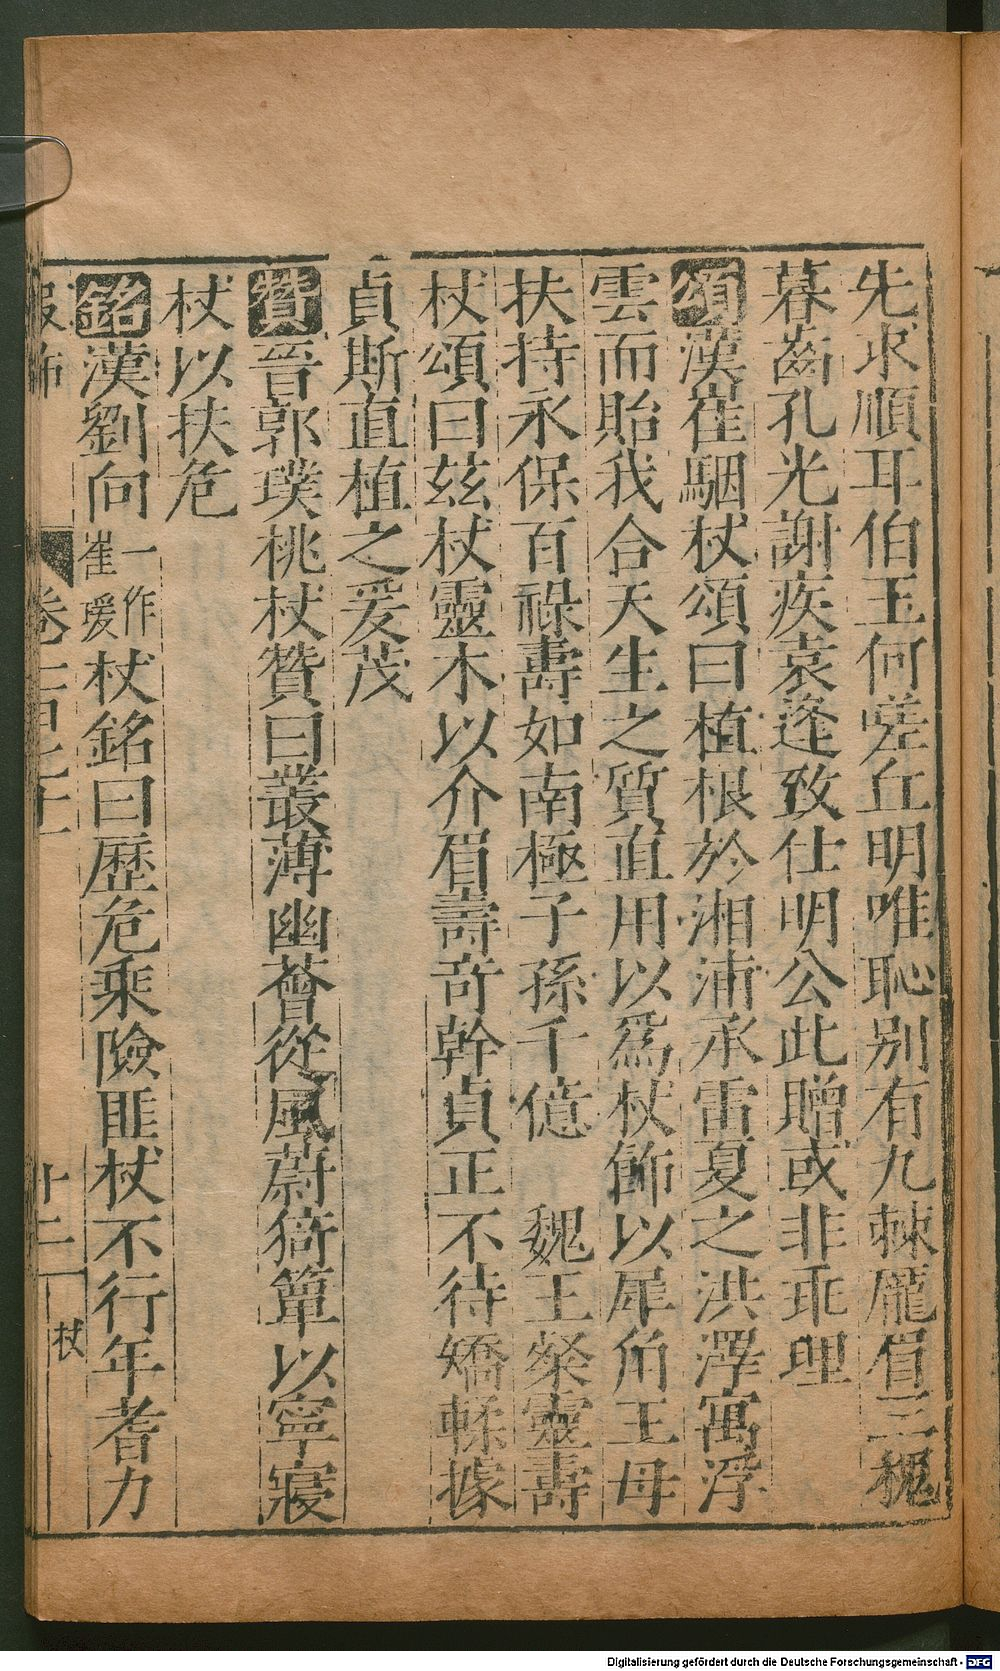 先求順耳伯玉何嗟丘明唯恥別有九棘龐眉三槐
暮齒孔光謝疾袁逢致仕明公此贈或非乖理
頌漢崔駰杖頌曰植根於湘浦承雷夏之洪澤寓浮
雲而貽我合天生之質直用以爲杖飾以犀角王母
扶持永保百祿壽如南極子孫千億　魏王粲靈壽
杖頌曰茲杖靈木以介眉壽奇幹貞正不待矯輮據
貞斯直植之爰茂
贊晉郭璞桃杖贊曰叢薄幽薈從風蔚猗簞以寧寢
杖以扶危
銘漢劉向一作崔瑗杖銘曰歷危乘險匪杖不行年耆力
服飾
十二
杖
Digitalisierung gefördert durch die Deutsche Forschungsgemeinschaft - DFG